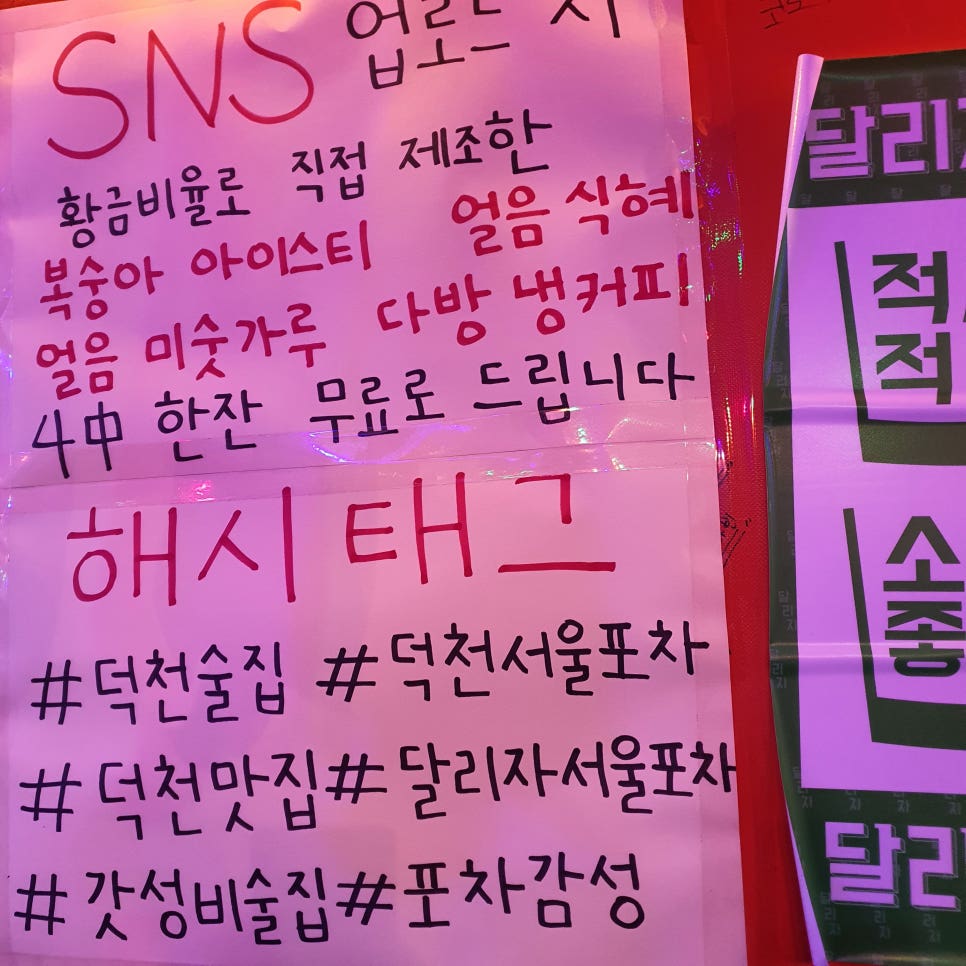 SNS 업로드 시
황금비율로 직접 제조한
복숭아 아이스티 얼음 식혜
얼음 미숫가루 다방 냉커피
4中 한잔 무료로 드립니다
해시태그
#덕천술집 #덕천서울포차
#덕천맛집 #달리자서울포차
#갓성비술집 #포차감성
달리자
적
적
소
종
달리